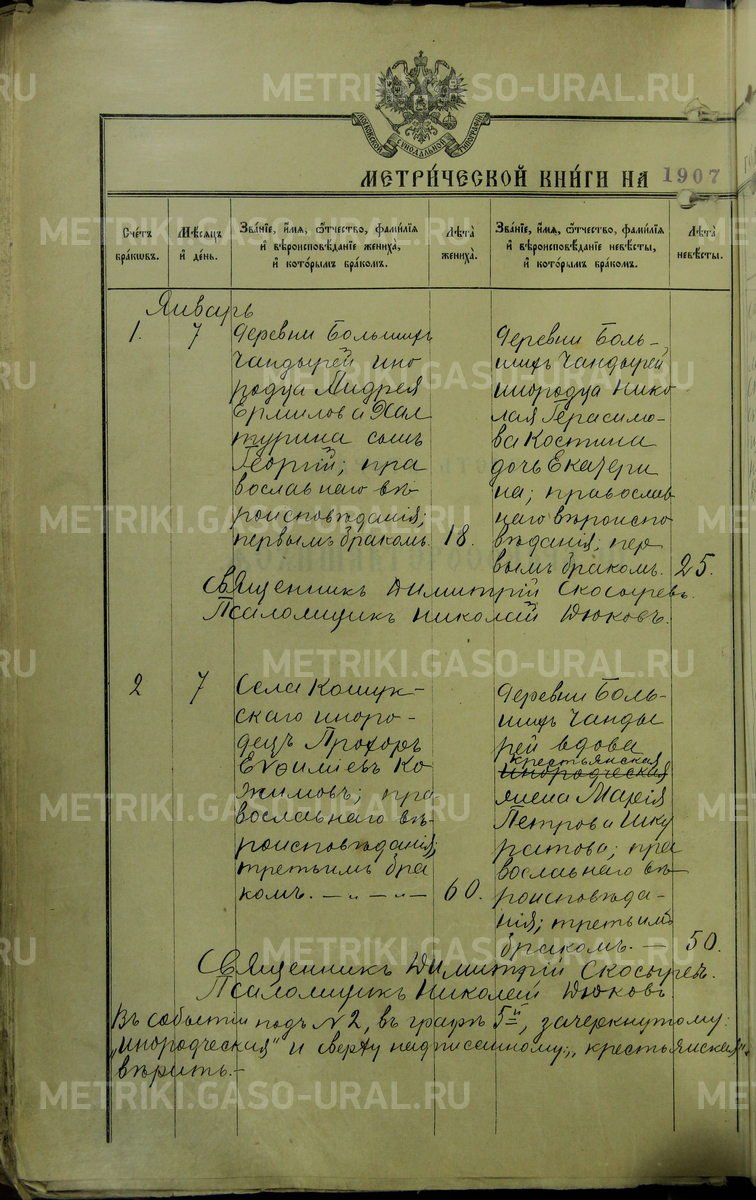 METRIKI.GASO-URAL.RU
МОСКОВСКОЙ СѴНОДАЛЬНОЙ ТИПОГРАФІИ
МЕТРИ́ЧЕСКОЙ КНИ́ГИ НА 1907
Сче́тъ бра́кѡвъ.
Мѣ́сяцъ и҆ де́нь.
Зва́нїе, и҆́мѧ, ѻ҆́тчество, фами́лїѧ и҆ вѣроисповѣ́данїе жениха̀, и҆ кото́рымъ бра́комъ.
Лѣ́та жениха̀.
Зва́нїе, и҆́мѧ, ѻ҆́тчество, фами́лїѧ и҆ вѣроисповѣ́данїе невѣ́сты, и҆ кото́рымъ бра́комъ.
Лѣ́та невѣ́сты.
Январь
1.
7
Деревни Большихъ
Чандырей ино
родца Андрея
Ермилова Хал
турина сынъ
Георгій; пра
вославнаго вѣ
роисповѣданія;
первымъ бракомъ.
18.
Деревни Боль-
шихъ Чандырей
инородца Нико
лая Герасимо-
ва Костина
дочь Екатери
на; православ
наго вѣроиспо
вѣданія; пер
вымъ бракомъ.
25.
Священникъ Димитрій Скосыревъ.
Псаломщикъ Николай Дюковъ.
2
7
Села Кошук-
скаго иноро-
децъ Прохоръ
Евѳиміевъ Ко
жимовъ; пра
вославнаго вѣ-
роисповѣданія;
третьимъ бра
комъ. — „ — „ —
60.
Деревни Боль-
шихъ Чанды
рей вдова
крестьянская
инородческая
жена Марія
Петрова Шку
ратова; пра
вославнаго вѣ
роисповѣда-
нія; третьимъ
бракомъ. —
50.
Священникъ Димитрій Скосыревъ.
Псаломщикъ Николай Дюковъ.
Въ событіи подъ № 2, въ графѣ 5й, зачеркнутому:
„инородческая" и сверху надписанному: „крестьянская",
вѣрить.—